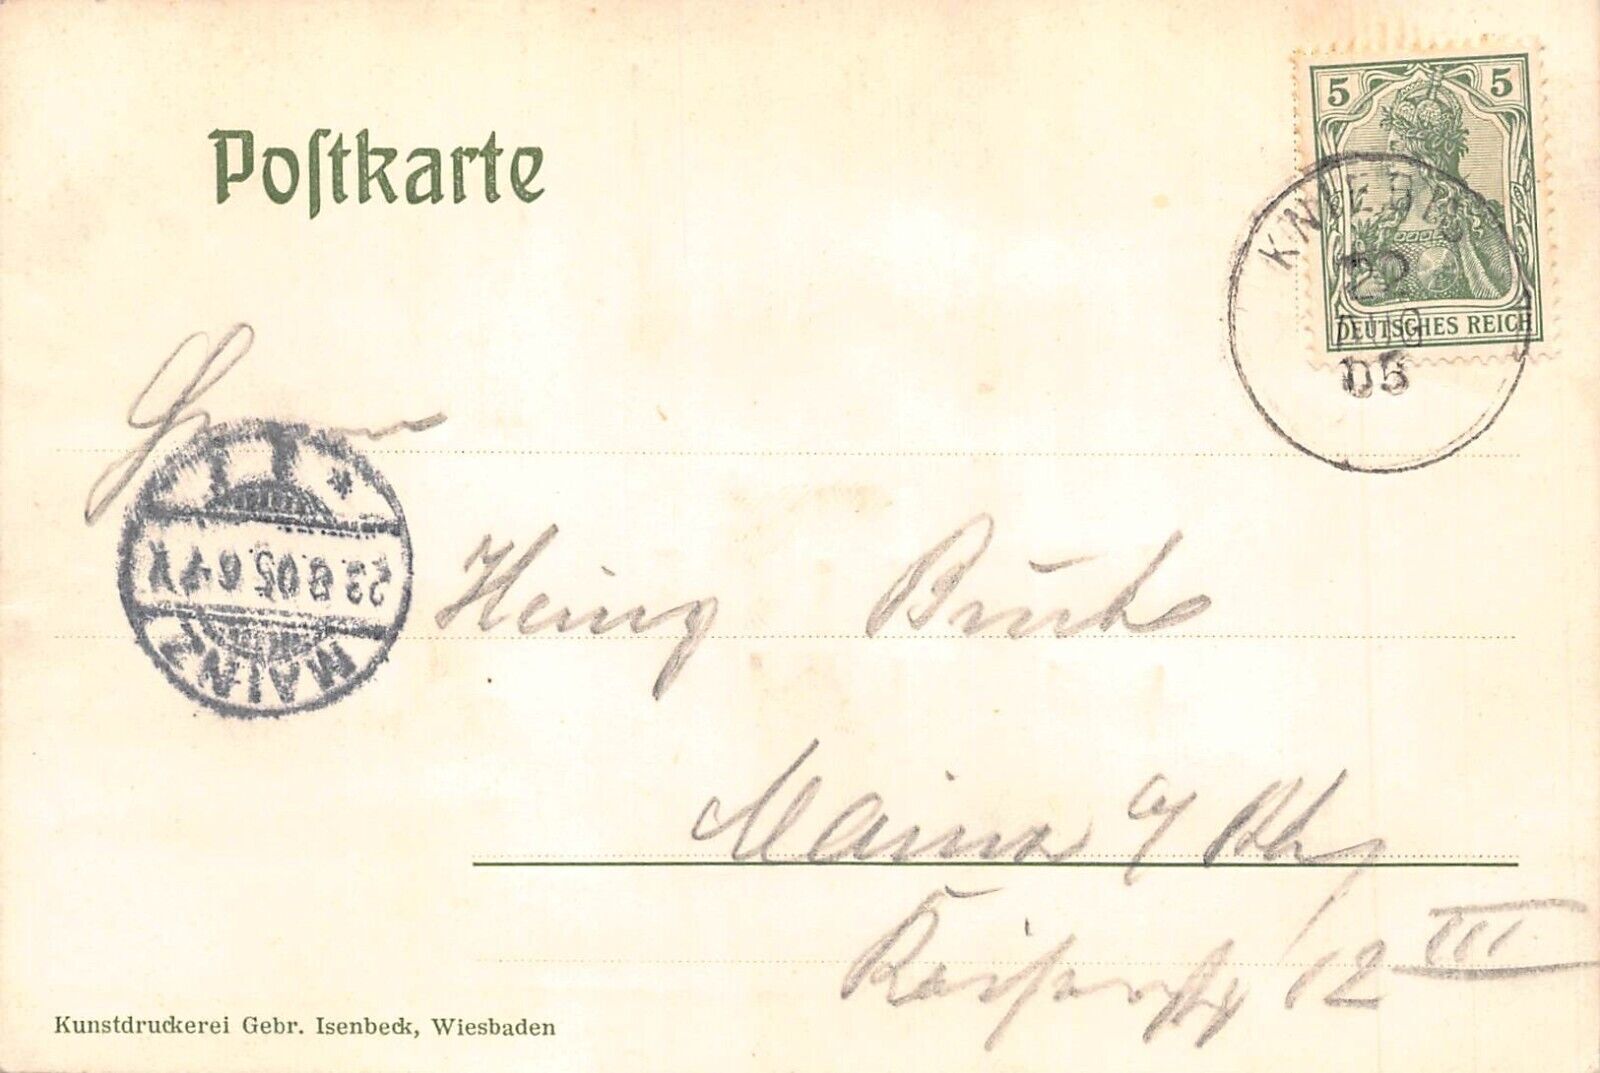 Poſtkarte
5 5
DEUTSCHES REICH
KNIEBIS
22
AUG
05
MAINZ
23.8.05.6-7V
Heinz
Mainz a/ Rh
Kaiserstr 12 III
Kunstdruckerei Gebr. Isenbeck, Wiesbaden